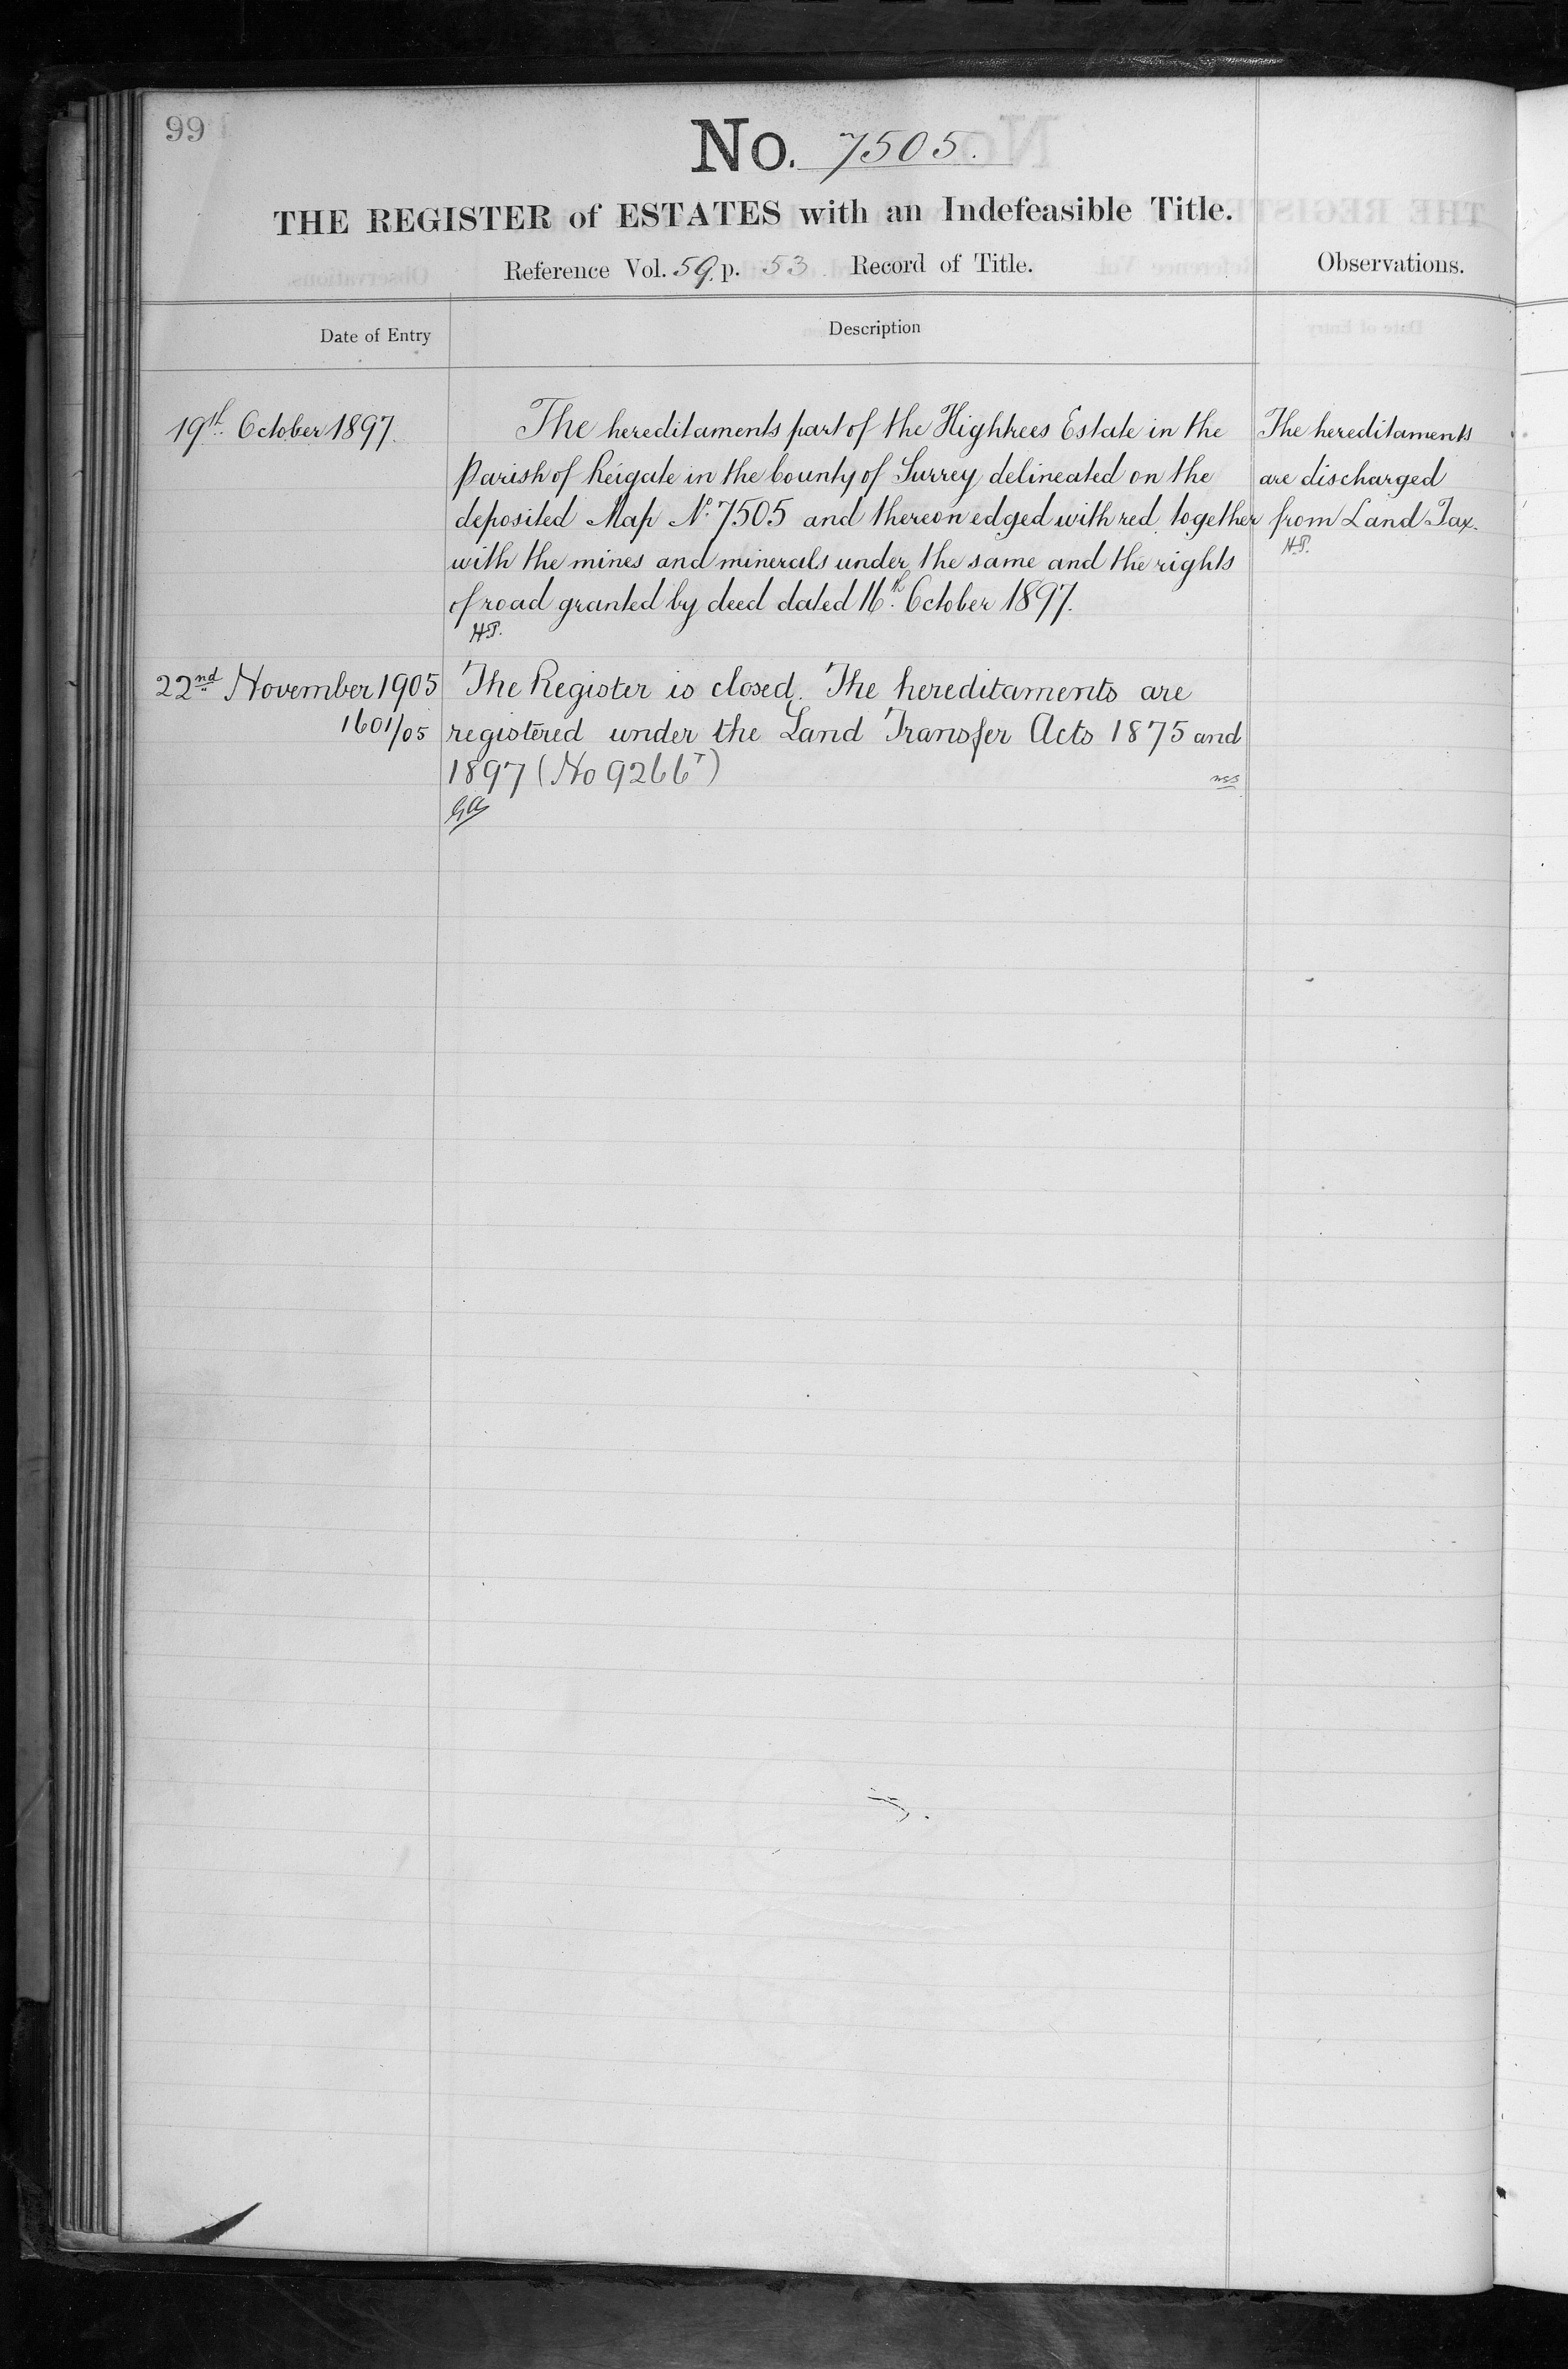 99
No. 7505.
THE REGISTER of ESTATES with an Indefeasible Title.
Reference Vol. 59. p. 53 Record of Title.
Observations.
Date of Entry
Description
19th. October 1897.
The hereditaments part of the Hightrees Estate in the
Parish of Reigate in the County of Surrey delineated on the
deposited Map No. 7505 and thereon edged with red together
with the mines and minerals under the same and the rights
of road granted by deed dated 16th. October 1897.
H.P.
The hereditaments
are discharged
from Land Tax.
H.P.
22nd November 1905
1601/05
The Register is closed. The hereditaments are
registered under the Land Transfer Acts 1875 and
1897 (No 9266T)